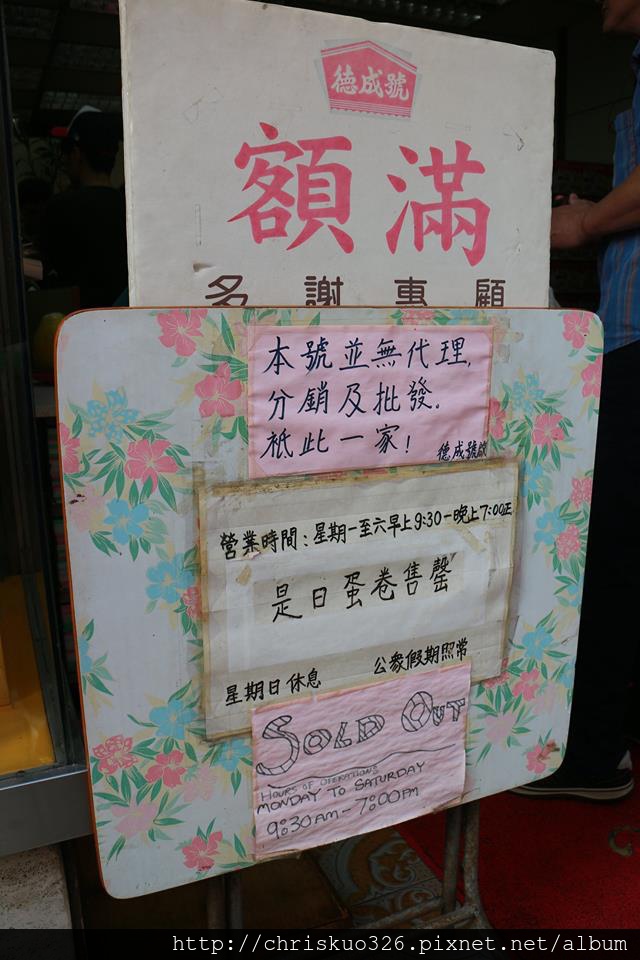 德成號
額滿
多謝惠顧
本號並無代理,
分銷及批發。
祇此一家!
德成號啟
營業時間:星期一至六早上9:30一晚上7:00正
是日蛋卷售罄
星期日休息 公眾假期照常
SOLD OUT
HOURS OF OPERATIONS
MONDAY TO SATURDAY
9:30AM-7:00PM
http://chriskuo326.pixnet.net/album